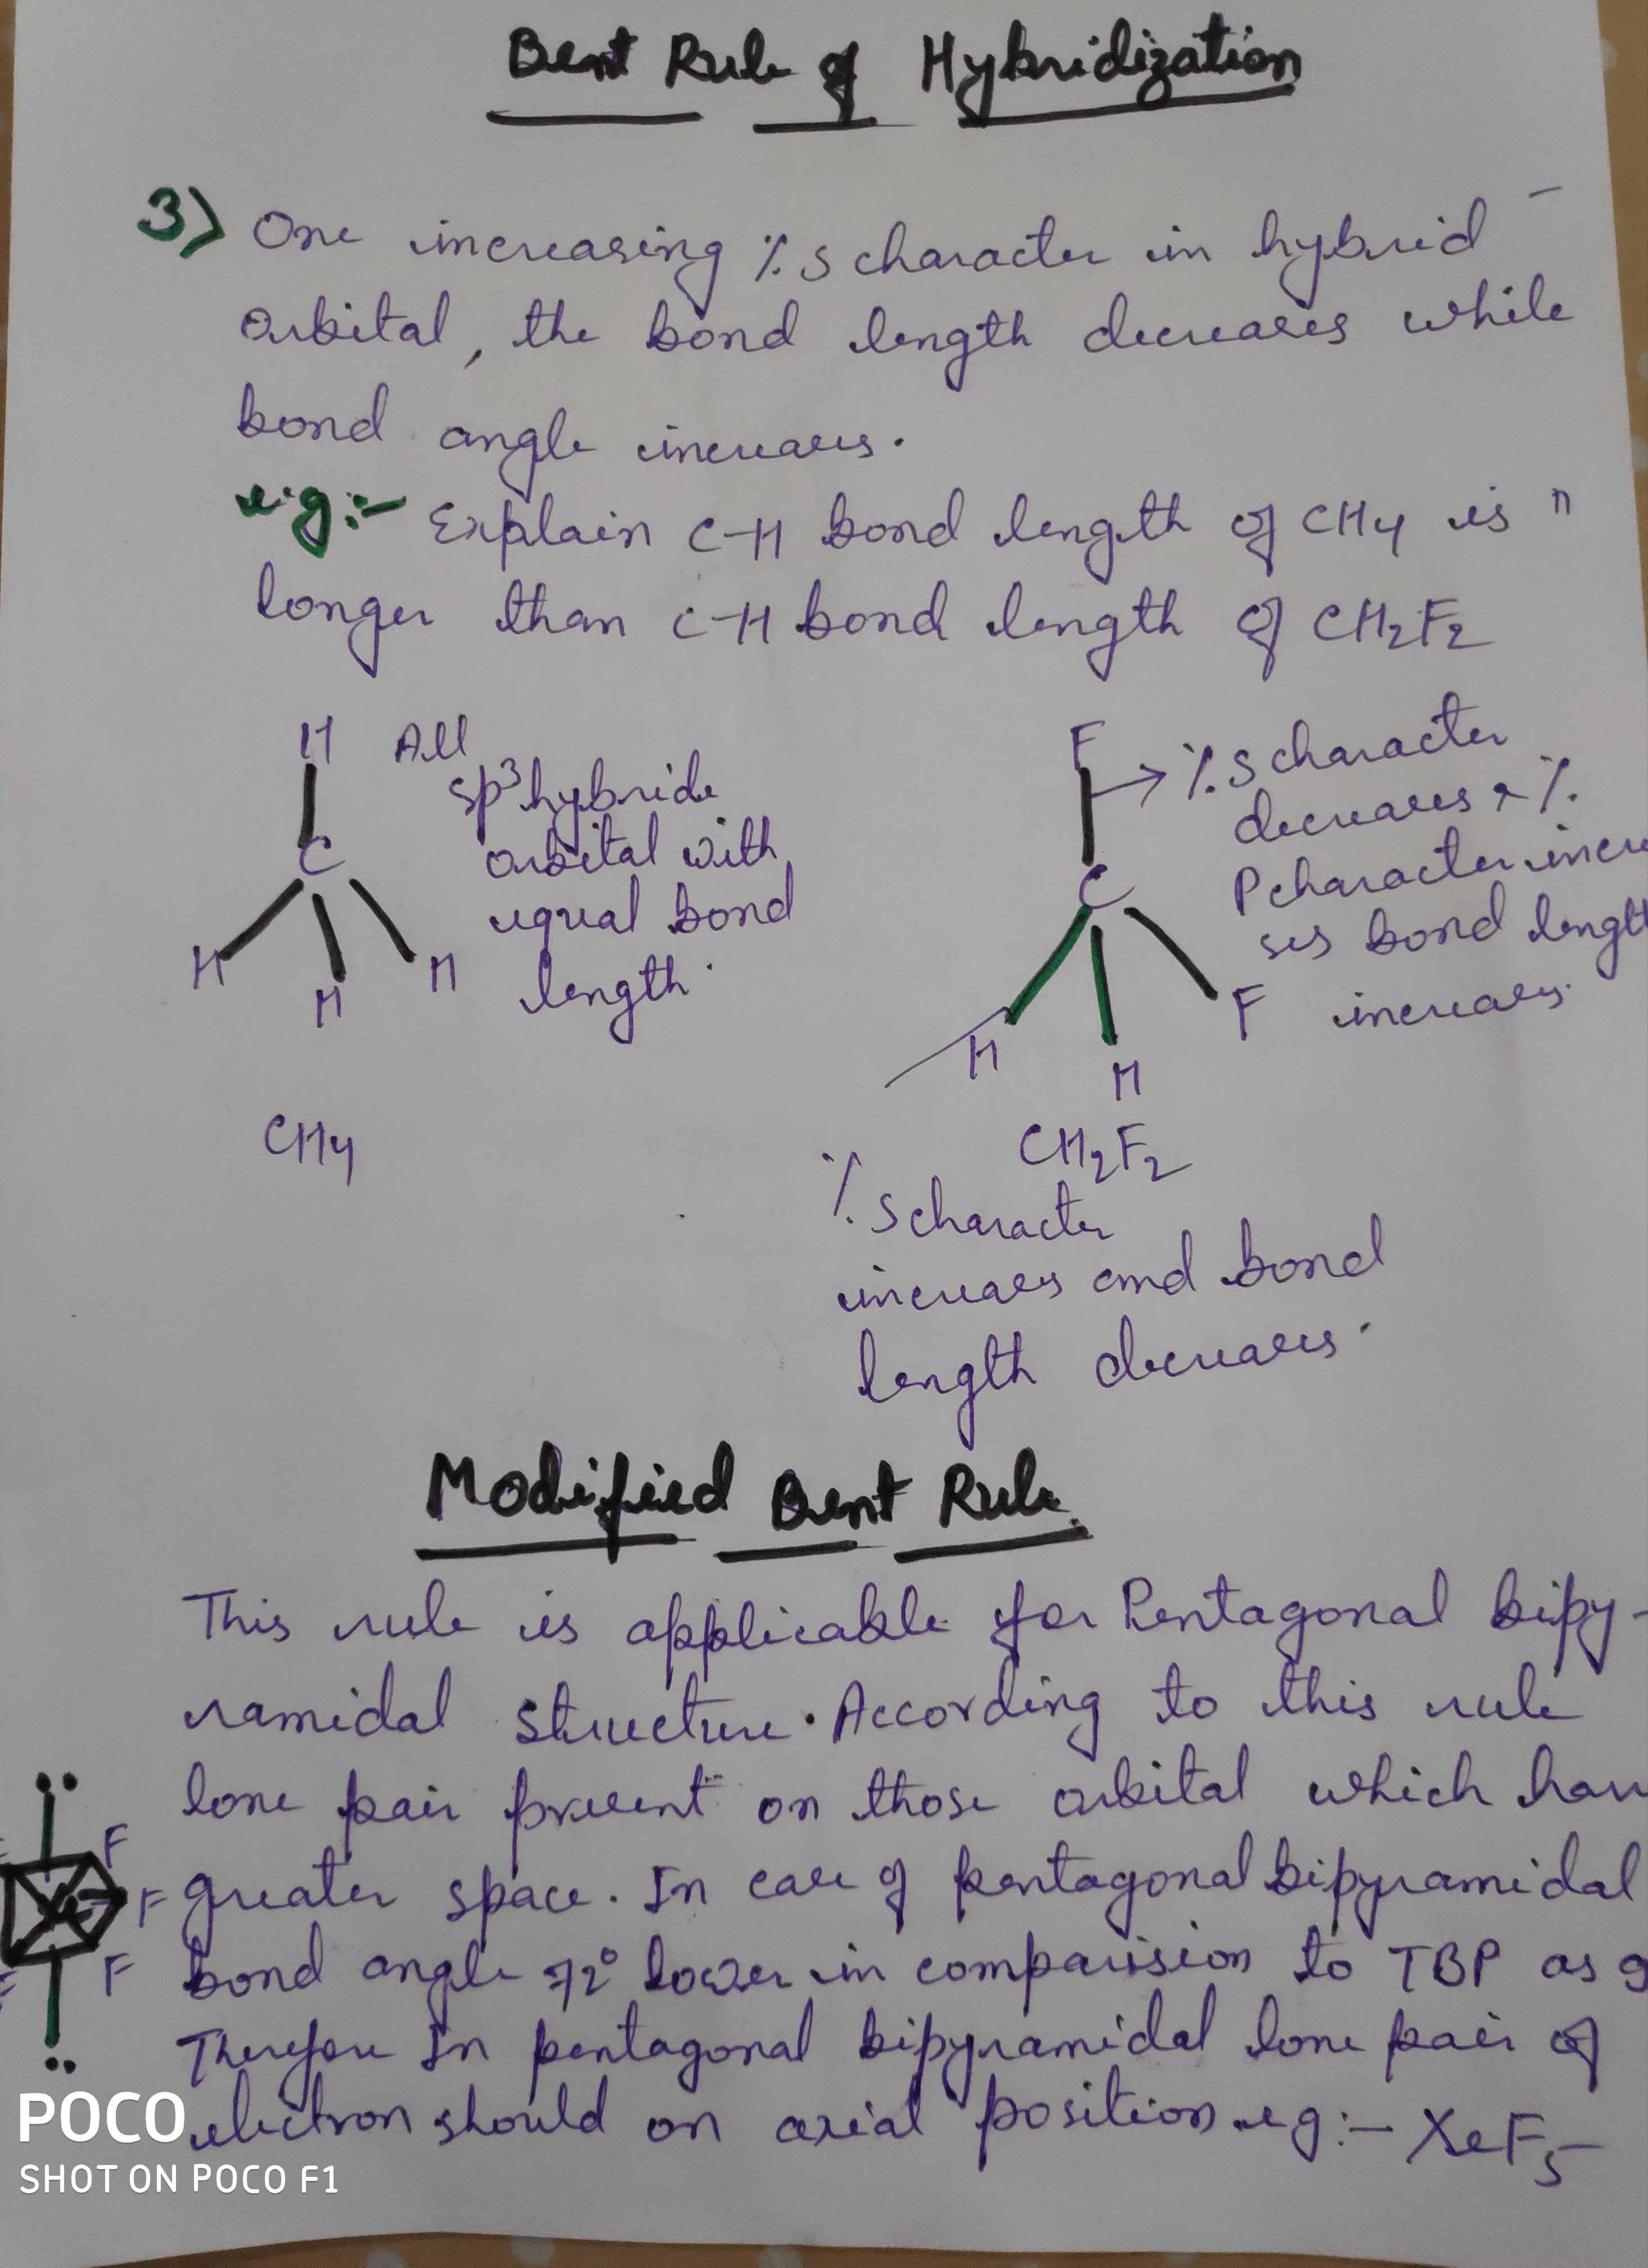 Bent Rule of Hybridization
3) One increasing % s character in hybrid
orbital, the bond length decreases while
bond angle increases.
e.g:- Explain C-H bond length of CH4 is "
longer than C-H bond length of CH2F2
H
All
sp3 hybride
orbital with
equal bond
length.
C
H
H
H
CH4
F
→ % s character
decreases & %
P character increa
ses bond length
increases.
C
H
H
F
CH2F2
% s character
increases and bond
length decreases.
Modified Bent Rule.
This rule is applicable for Pentagonal bipy-
ramidal structure. According to this rule
lone pair present on those orbital which hav
greater space. In case of pentagonal bipyramidal
bond angle 72° lower in comparision to TBP as 9
Therefore In pentagonal bipyramidal lone pair of
electron should on axial position eg:- XeF5-
F
F
F
POCO
SHOT ON POCO F1